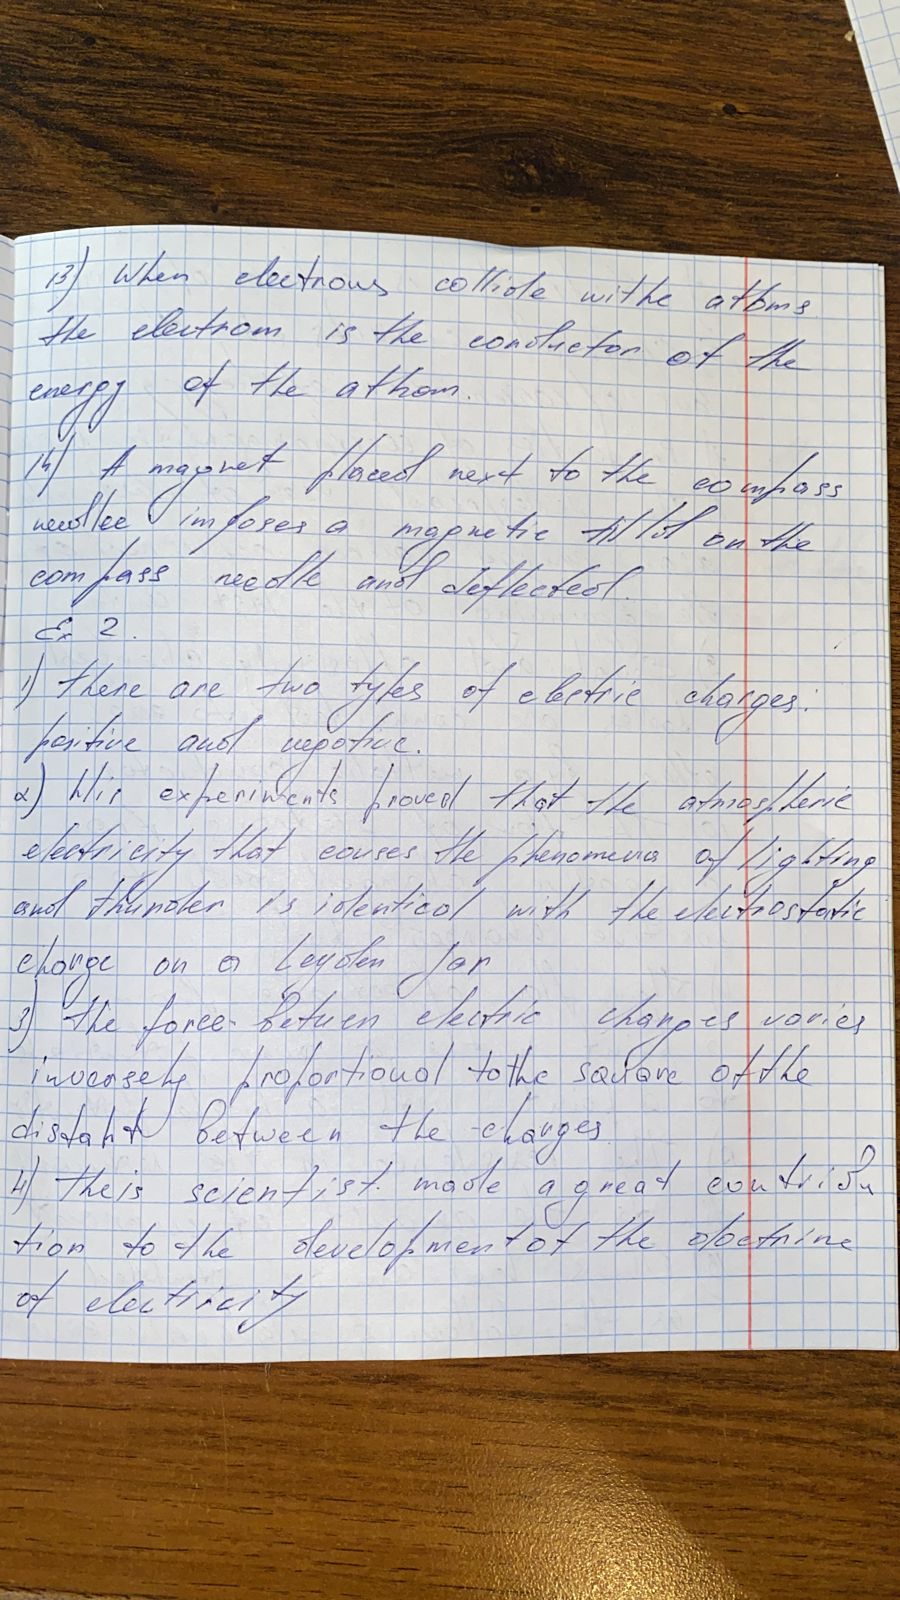 13) When electrons collide withe athoms
the electrom is the conductor of the
energy of the athom.
14) A magnet placed next to the compass
needlee imposes a magnetic on the
compass needle and deflected.
Ex 2.
1) there are two types of electric charges:
positive and negative.
2) His experiments proved that the atmospheric
electricity that couses the phenomena of lighting
and thunder is identical with the electrostatic
charge on a Leyden Jar
3) the force between electric charges varies
inversely proportional to the square of the
distant between the charges
4) theis scientist made a great contribu
tion to the development of the doctrine
of electricity